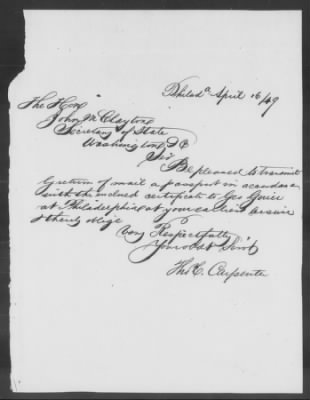 Philada April 16/49
The Hon
John M Clayton
Secretary of State
Washington DC
Sir
Be pleased to transmit
by return of mail a passport in accordance
with the inclosed certificate to Geo
at Philadelphia at your earliest
& thereby oblige
Very Respectfully
Your obt Servt
Thos C. Carpenter